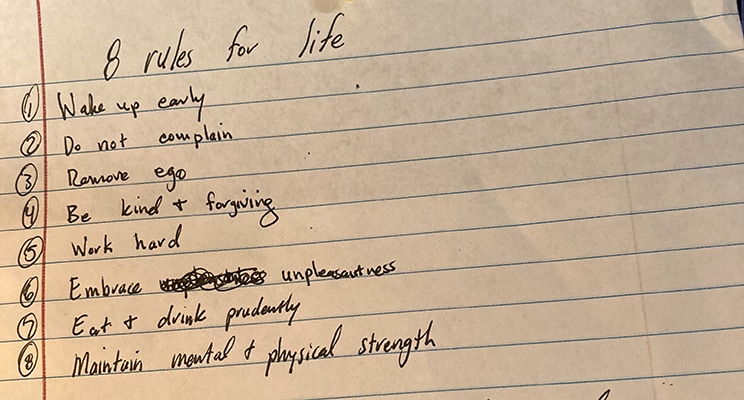 8 rules for life
1 Wake up early
2 Do not complain
3 Remove ego
4 Be kind + forgiving
5 Work hard
6 Embrace unpleasantness
7 Eat + drink prudently
8 Maintain mental + physical strength